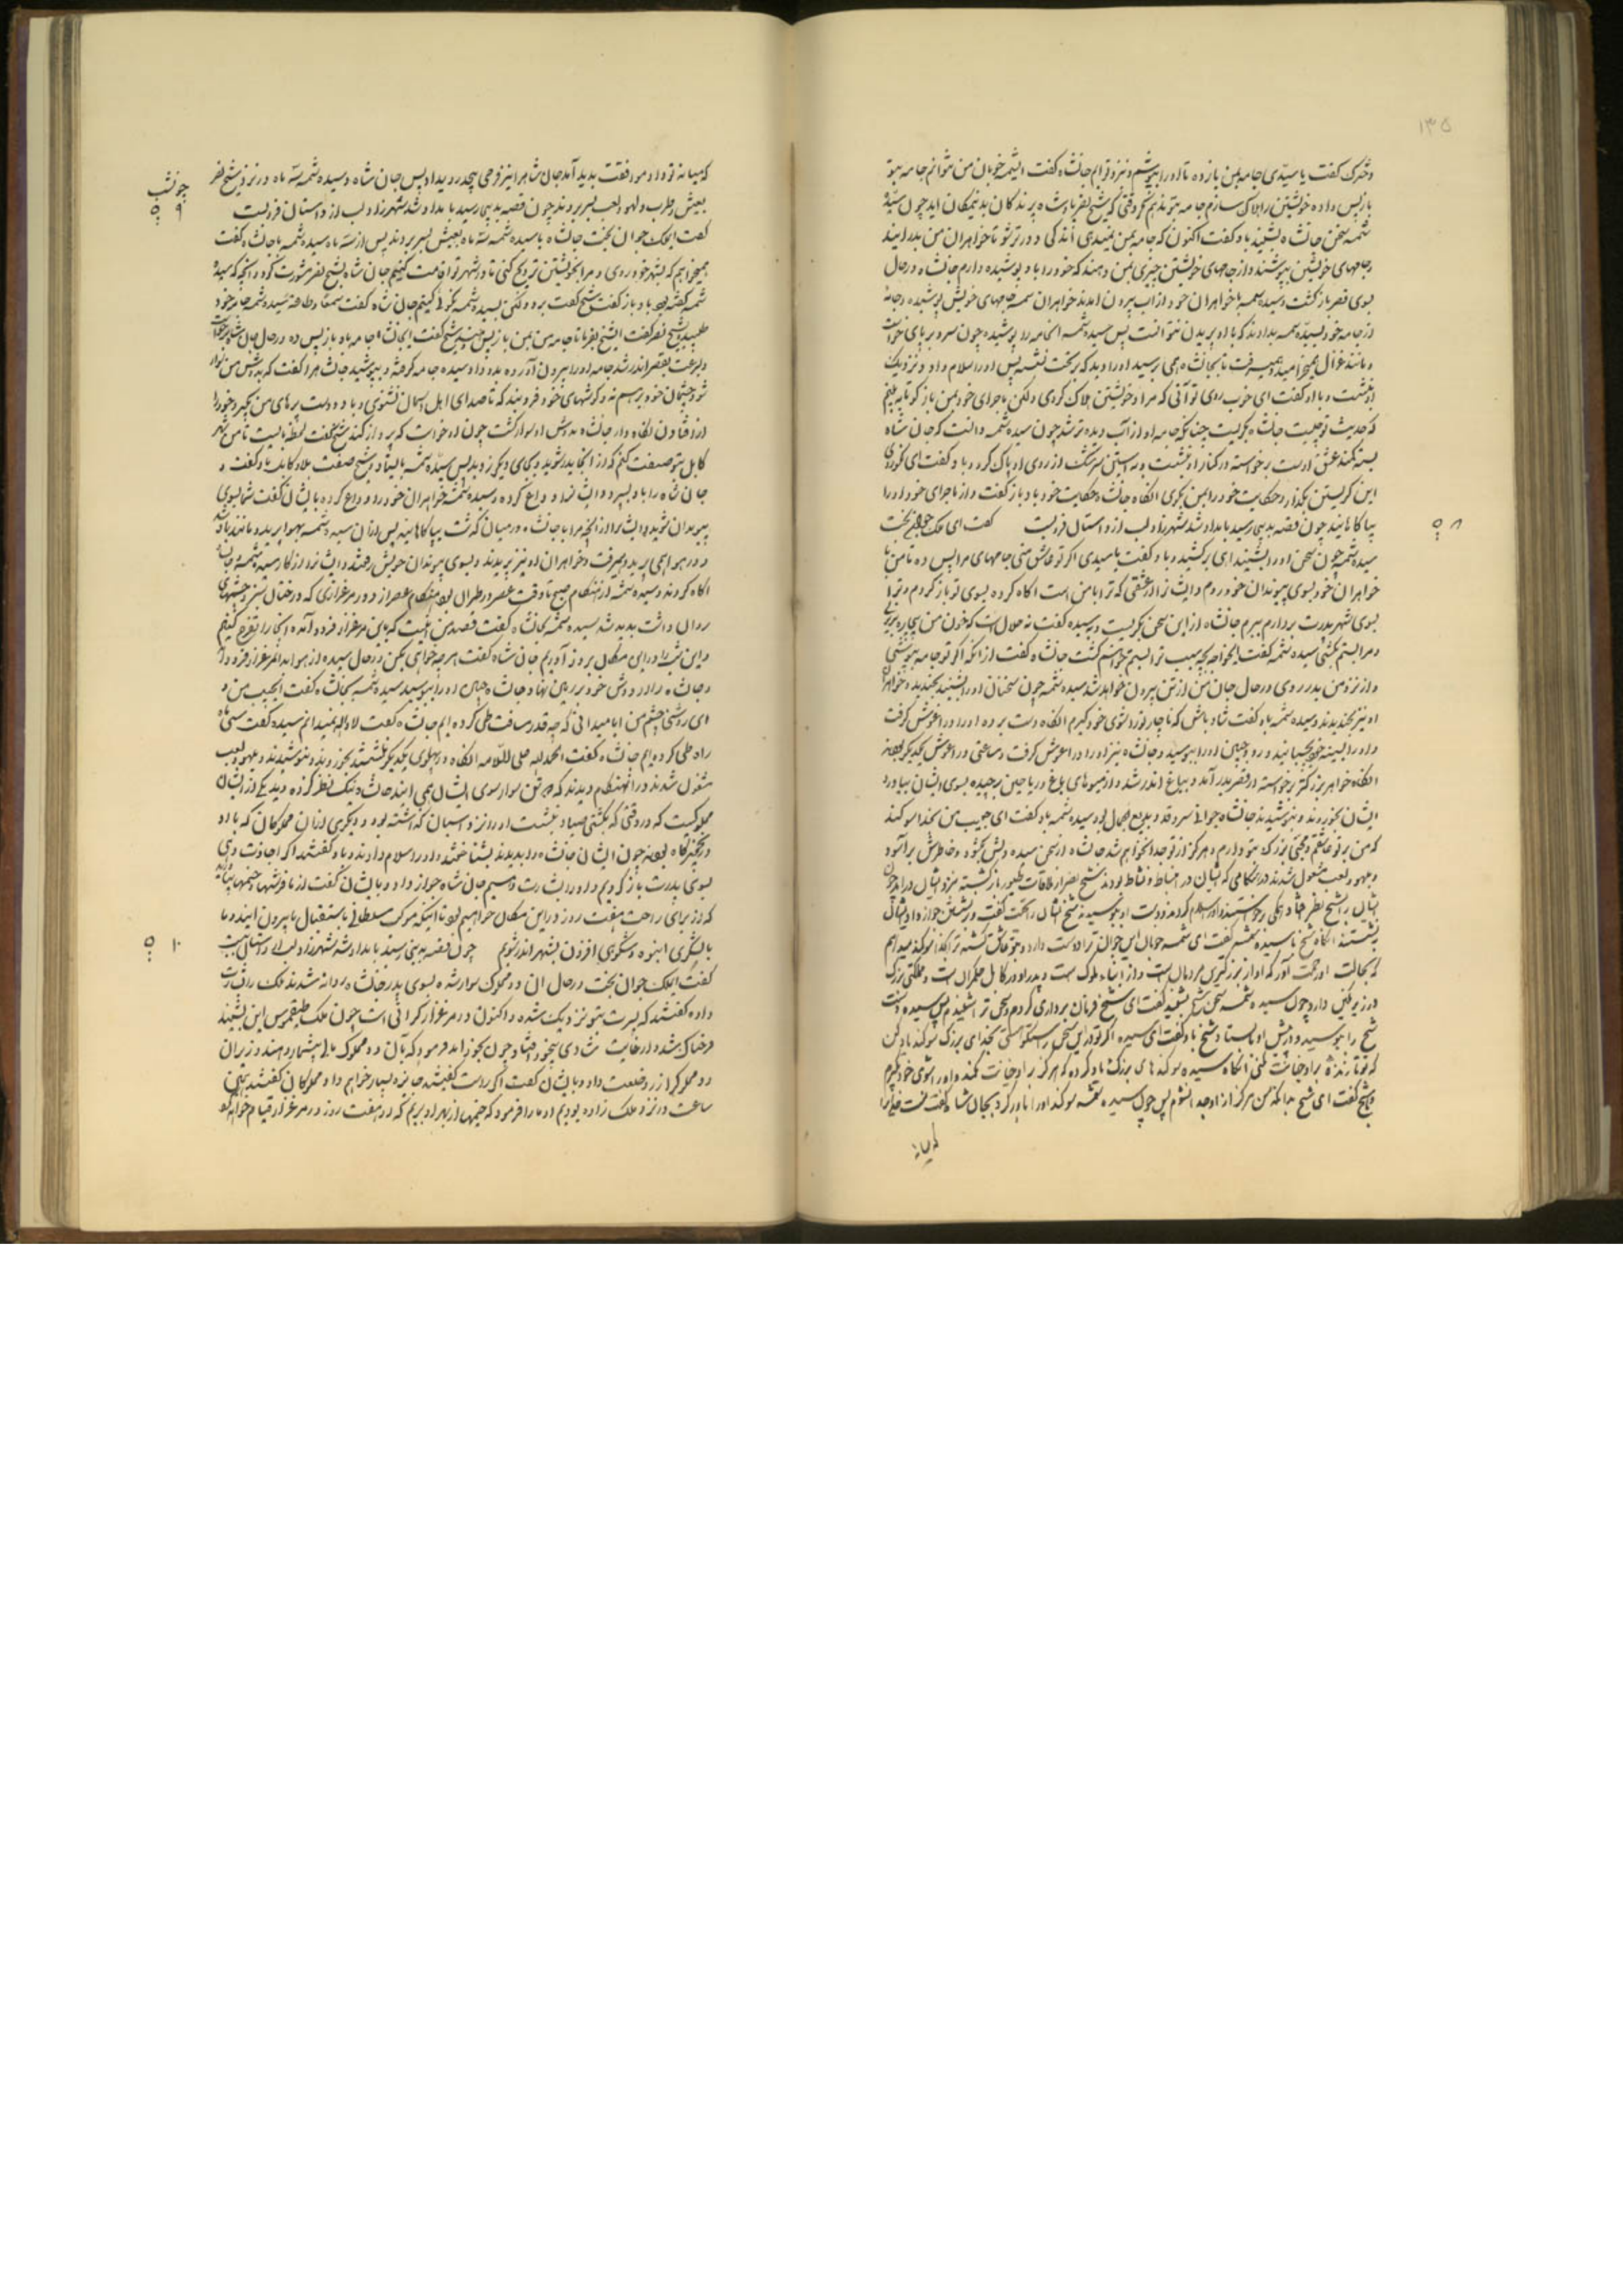 ۱۳۵
دخترک گفت یا سیّدی جامه بمن باز ده تا او را بپوشم و نزد تو آیم جانشاه گفت ای شمه خوبان من نتوانم جامه بتو
باز پس داده خویشتن را هلاک سازم جامه بتو ندهم مگر وقتی که شیخ نصر پادشاه پرندگان بدینمکان آید چون سیده
شمسه سخن جانشاه بشنید باو گفت اکنون که جامه بمن نمیدهی اندکی دورتر شو تا خواهران من بدر آیند
و جامهای خویشتن بپوشند و از جامهای خویشتن چیزی بمن دهند که خود را باو پوشیده دارم جانشاه در حال
بسوی قصر بازگشت و سیده شمسه با خواهران خود از آب بیرون آمدند خواهران شمسه جامهای خویش پوشیده و جامه
از جامه خود بسیّده شمسه بدادند که با او پریدن نتوانست پس سیده شمسه آن جامه را پوشیده چون سرو بر پای خواست
و مانند غزال همیخرامید و همیرفت تا بجانشاه همی رسید او را دید که بر تخت نشسته پس او را سلام داد و نزدیک
او نشست و باو گفت ای خوب روی تو آنی که مرا و خویشتن هلاک کردی ولکن ماجرای خود بمن باز گو تا ببینم
که حدیث تو چیست جانشاه بگریست چنانکه جامه او از آب دیده تر شد چون سیده شمسه دانست که جان شاه
بسته کمند عشق اوست برخواسته در کنار او نشست و به آستین سرشک از روی او پاک کرد و باو گفت ای نکوروی
این گریستن بگذار و حکایت خود را بمن بگوی آنگاه جانشاه حکایت خود باو باز گفت و از ماجرای خود او را
بیاگاهانید چون قصه بدینجا رسید بامداد شد شهرزاد لب از داستان فروبست گفت ای ملک جوانبخت
۸
سیده شمسه چون سخن او را بشنید آهی برکشید و باو گفت یا سیدی اگر تو عاشق منی جامهای مرا پس ده تا من با
خواهران خود بسوی پیوندان خود روم و ایشانرا از عشقی که ترا با من است آگاه کرده بسوی تو باز گردم و ترا
بسوی شهر پدرت بردارم ببرم جانشاه از این سخن بگریست و به سیده گفت نه حلال است که خون من بیچاره بریزی
و مرا بستم بکشی سیده شمسه گفت ایخواجه بچه سبب ترا بستم خواهم کشت جانشاه گفت از آنکه اگر تو جامه بپوشی
و از نزد من بدر روی در حال جان من از تن بیرون خواهد شد سیده شمسه چون سخنان او را بشنید بخندید و خواهران
او نیز بخندیدند و سیده شمسه باو گفت شاد باش که ناچار ترا بشوی خود گیرم آنگاه دست برده او را در آغوش گرفت
و او را بسینه خود بچسبانید و رو و جبین او را ببوسید و جانشاه نیز او را در آغوش گرفت و ساعتی در آغوش یکدیگر بودند
آنگاه خواهر بزرگتر برخواسته از قصر بدر آمد و بباغ اندر شد و از میوهای باغ و ریاحین برچیده بسوی ایشان بیاورد
ایشان بخوردند و بنوشیدند جانشاه جوانی سرو قد و بدیع جمال بود سیده شمسه باو گفت ای حبیب من بخدا سوگند
که من بر تو عاشقم و محبتی بزرگ بتو دارم و هرگز از تو جدا نخواهم شد جانشاه از سخن سیده دلش بگشود و خاطرش برآسود
و بلهو و لعب مشغول شدند در هنگامی که ایشان در انبساط و نشاط بودند شیخ نصر از ملاقات طیور بازگشته بنزد ایشان در آمد چون
ایشان را شیخ نظر افتاد همگی برخواستند و او را سلام کردند و دست او ببوسیدند شیخ ایشان را تحیّت گفت و بنشستن جواز داد ایشان
بنشستند آنگاه شیخ با سیده شمسه گفت ای شمسه خوبان این جوان ترا دوست دارد و بتو عاشق گشته ترا بخدا سوگند میدهم
که بحالت او رحمت آور که او از بزرگترین مردمان است و از ابناء ملوک است و پدر او در کابل حکمران است و مملکتی بزرگ
در زیر نگین دارد چون سیده شمسه سخن شیخ بشنید گفت ای شیخ فرمان برداری کردم و سخن ترا شنیدم پس سیده دست
شیخ را ببوسید و در پیش او بایستاد و شیخ باو گفت ای سیده اگر تو در این سخن راستگو هستی بخدای بزرگ سوگند یاد کن
که تو تا زنده براو خیانت نکنی آنگاه سیده سوگندهای بزرگ یاد کرده که هرگز بر او خیانت نکند و او را شوی خود گیرم
و شیخ گفت ای شیخ بدانکه من هرگز از او جدا نشوم پس چون سیده شمسه سوگند او را باور کرد بجان شاه گفت منت خدایرا
که میانه
که میانه تو و او موافقت پدید آمد جان شاه را نیز فرحی بیحد روی داد پس جان شاه و سیده شمسه سه ماه در نزد شیخ نصر
بعیش و طرب و لهو و لعب بسر بردند چون قصه بدینجا رسید بامداد شد شهرزاد لب از داستان فروبست
چو نشب
۹
گفت ایملک جوان بخت جانشاه با سیده شمسه سه ماه بعیش بسر بردند پس از سه ماه سیده شمسه با جانشاه گفت
همیخواهم که بشهر خود روی و مرا بخویشتن تزویج کنی تا در شهر تو اقامت کنیم جان شاه با شیخ نصر مشورت کرد و آنچه که سیده
شمسه گفته بود باو باز گفت شیخ گفت برو و نکوئی بسیده شمسه کن جان شاه گفت سمعا و طاعة سیده شمسه جامه خود
طلبید و شیخ نصر گفت ای شیخ بفرما تا جامه من بمن باز پس دهند شیخ گفت ایجانشاه جامه باو باز پس ده در حال جان شاه برخواست
و بسرعت بقصر اندر شد جامه او را بیرون آورده بدو داد سیده جامه گرفته و بپوشید جانشاه را گفت که بدوش من سوار
شو و چشمان خود بر هم نه و گوشهای خود فروبند که تا صدای اهل آسمان نشنوی و با دو دست پرهای من بگیر و خود را
از افتادن نگاه دار جانشاه بدوش او سوار گشت چون او خواست که پرواز کند شیخ گفت لحظه بایست تا من شهر
کابل بتو صفت کنم که از آنجا بدر نشوید و بجای دیگر نروید پس سیّده شمسه بایستاد و شیخ صفت بلاد کابل باو گفت و
جان شاه را باو بسپرد و ایشانرا وداع کرده و سیده شمسه خواهران خود را وداع کرده بایشان گفت شما بسوی
پیوندان شوید و ایشانرا از آنچه مرا با جانشاه در میان گذشت بیاگاهانید پس از آن سیده شمسه بهوا پرید و مانند باد
در هوا همی پرید و میرفت و خواهران او نیز پریدند و بسوی پیوندان خویش رفتند و ایشانرا از کار سیده شمسه و جانشاه
آگاه کردند و سیده شمسه از هنگام صبح تا وقت عصر در طیران بود هنگام عصر از دور مرغزاری که درختان سبز و چشمهای
روان داشت پدید شد سیده شمسه بجانشاه گفت قصد من اینست که باین مرغزار فرود آمده آنجا را تفرج کنیم
و این شب را در این مکان بروز آوریم جان شاه گفت هر چه خواهی بکن در حال سیده از هوا بدانمرغزار فرود آمد
و جانشاه را از دوش خود بر زمین نهاد جانشاه جبین او را ببوسید سیده شمسه بجانشاه گفت ایحبیب من و
ای روشنی چشم من آیا میدانی که چه قدر مسافت طی کرده ایم جانشاه گفت لا والله نمیدانم سیده گفت سی ماه
راه طی کرده ایم جانشاه گفت الحمد لله علی السّلامه آنگاه در پهلوی یکدیگر بنشستند بخوردند و بنوشیدند و بلهو و لعب
مشغول شدند در آنهنگام دیدند که دو تن سوار سوی ایشان همی آیند جانشاه نیک نظر کرده دید یکی از ایشان
مملوکیست که در وقتی که بکشتی صیاد بنشست او را نزد اسبان گذاشته بود و دیگری از آن مملوکان که با او
در نخجیرگاه بودند چون ایشان جانشاه را بدیدند بشناختند و او را سلام دادند و باو گفتند اگر اجازت دهی
بسوی پدرت باز گردیم و او را بشارت رسانیم جان شاه جواز داد و بایشان گفت از ما فرشها و خیمها بیاورید
که از برای راحت هفت روز در این مکان خواهیم بود تا اینکه موکب سلطانی باستقبال ما بیرون آیند و ما
با لشگری انبوه و شکوهی افزون بشهر اندر شویم چون قصه بدینجا رسید بامداد شد شهرزاد لب از داستان ببست
۱۰
گفت ایملک جوان بخت در حال آن دو مملوک سوار شده بسوی پدر جانشاه روانه شدند ملک را بشارت
داده گفتند که پسرت بتو نزدیک شده و اکنون در مرغزار کرانی است چون ملک طیغموس این بشنید
فرحناک شد و از غایت شادی بیخود افتاد چون بخود آمد فرمود که بآن دو مملوک مالی بیشمار دهند وزیر آن
دو مملوک را زر و خلعت داد و بایشان گفت اگر راست گفتید جایزه بسیار خواهم داد مملوکان گفتند همین
ساعت در نزد ملک زاده بودیم او ما را فرمود که خیمها از بهر او بریم که او هفت روز در مرغزار قیام خواهد کرد